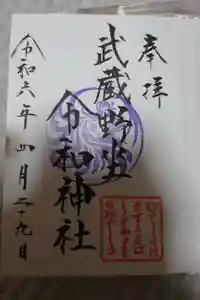 奉拝
武蔵野坐
令和神社
令和六年四月二十九日